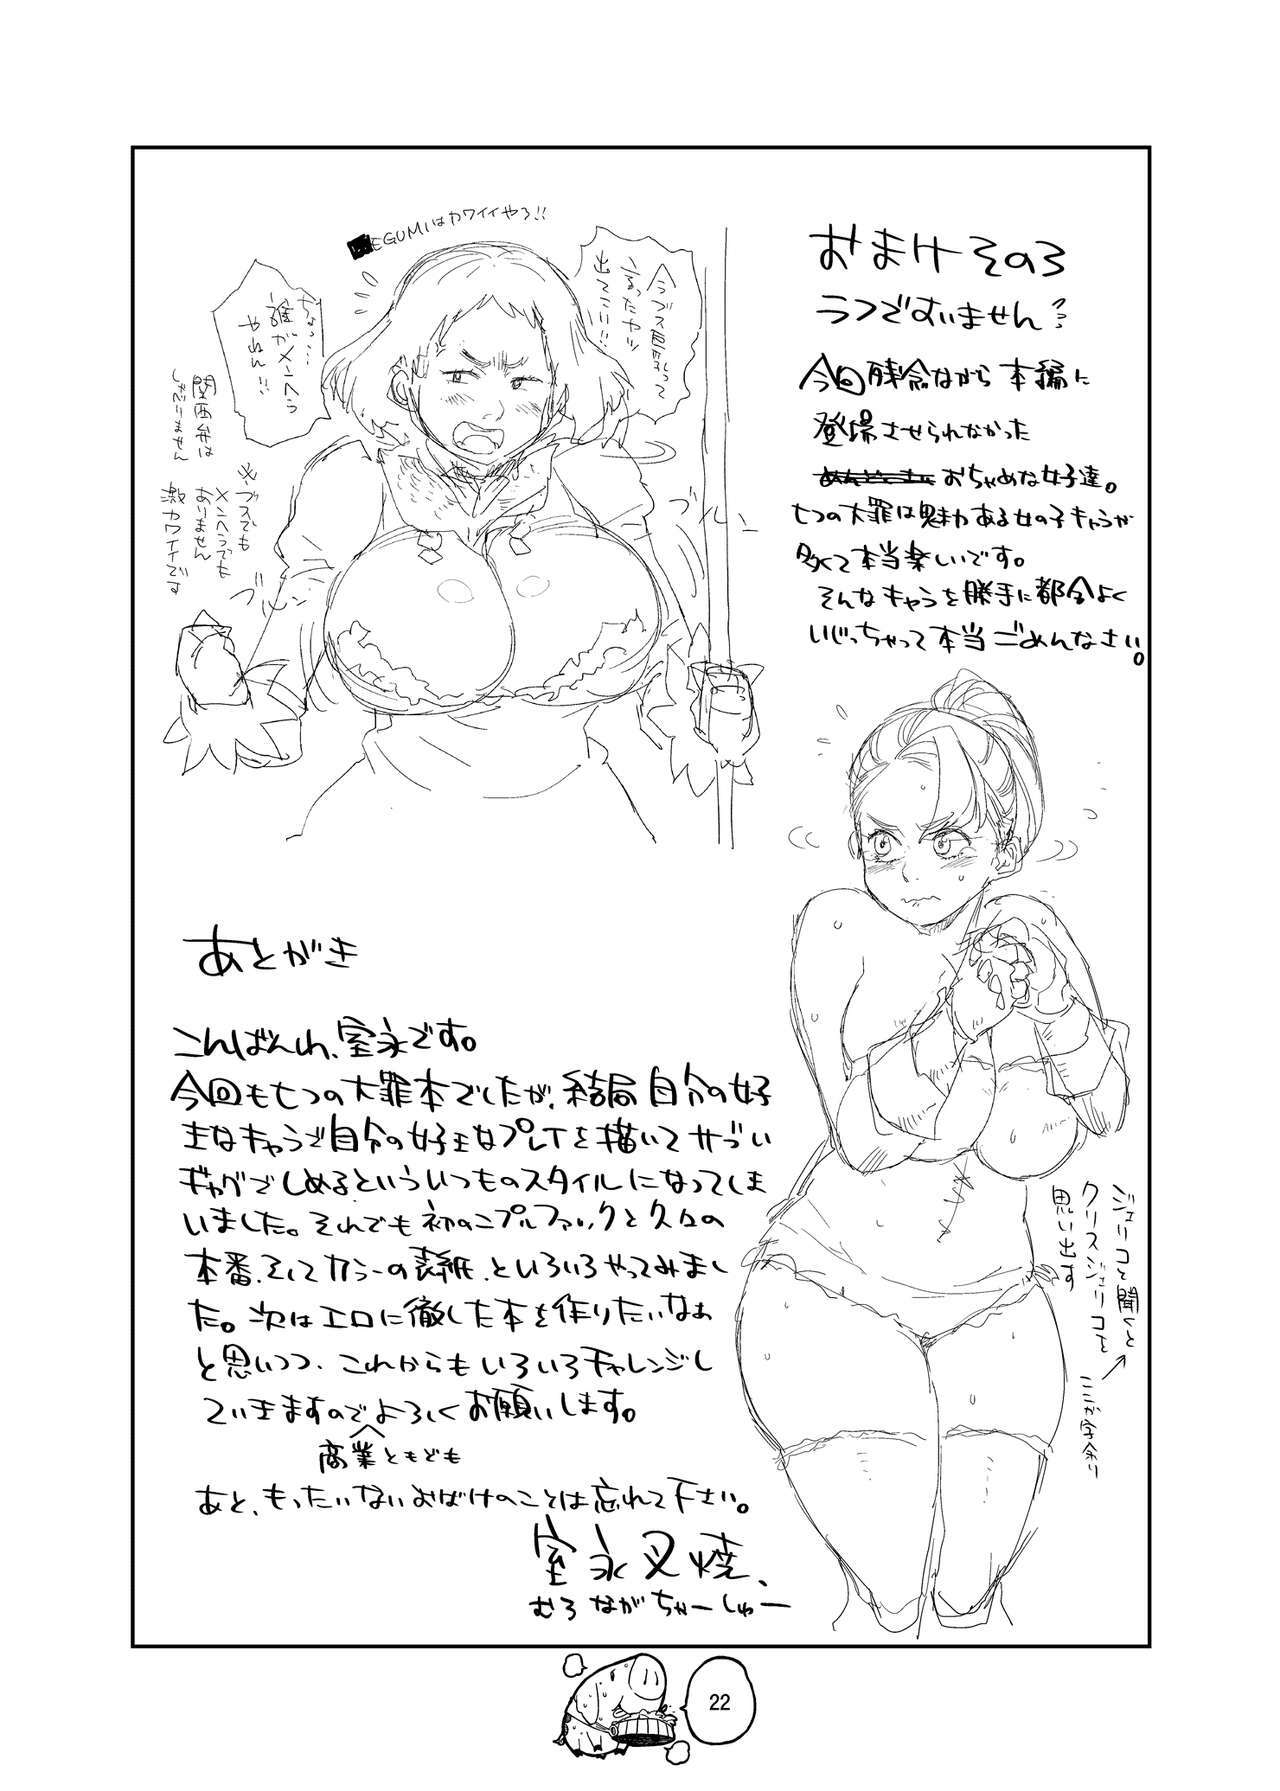 おまけその3
ラフですいません…
今回残念ながら本編に
登場させられなかった
おちゃめな女子達。
七つの大罪は魅力ある女の子キャラが
多くて本当楽しいです。
そんなキャラを勝手に都合よく
いじっちゃって本当ごめんなさい。
EGUMIはカワイイやろ!!
今ブス
言ったヤツ
出てこい!!!
ちょっ…
誰がメンヘラ
やねん!!
関西弁は
しゃべりません
※ブスでも
メンヘラでも
ありません
激カワイイです
ブルン
ブルン
ジェリコと聞くと
クリスジェリコを
思い出す
ここが字余り
あとがき
こんばんわ、室永です。
今回も七つの大罪本でしたが、結局自分の好
きなキャラで自分の好きなプレイを描いてサブい
ギャグでしめるといういつものスタイルになってしま
いました。それでも初のニプルファックと久々の
本番、そしてカラーの表紙、といろいろやってみまし
た。次はエロに徹した本を作りたいなぁ
と思いつつ、これからもいろいろチャレンジし
ていきますのでよろしくお願いします。
商業ともども
あと、もったいないおばけのことは忘れて下さい。
室永叉焼、
むろながちゃーしゅー
22